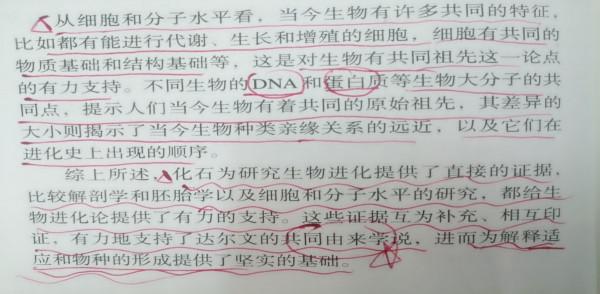 从细胞和分子水平看，当今生物有许多共同的特征，
比如都有能进行代谢、生长和增殖的细胞，细胞有共同的
物质基础和结构基础等，这是对生物有共同祖先这一论点
的有力支持。不同生物的DNA和蛋白质等生物大分子的共
同点，提示人们当今生物有着共同的原始祖先，其差异的
大小则揭示了当今生物种类亲缘关系的远近，以及它们在
进化史上出现的顺序。
综上所述，化石为研究生物进化提供了直接的证据，
比较解剖学和胚胎学以及细胞和分子水平的研究，都给生
物进化论提供了有力的支持。这些证据互为补充、相互印
证，有力地支持了达尔文的共同由来学说，进而为解释适
应和物种的形成提供了坚实的基础。